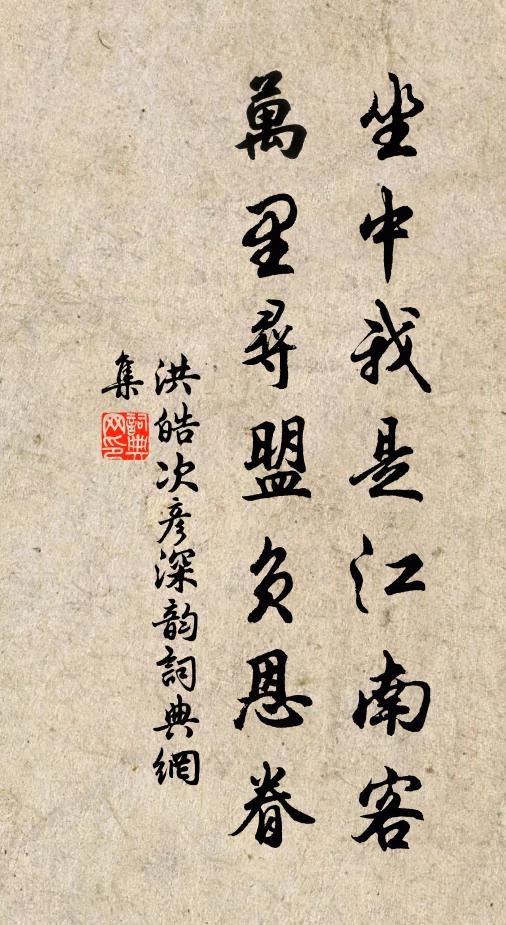 坐中我是江南客
萬里尋盟負恩眷
洪皓次彥深韵詞典網
集
詞典网印